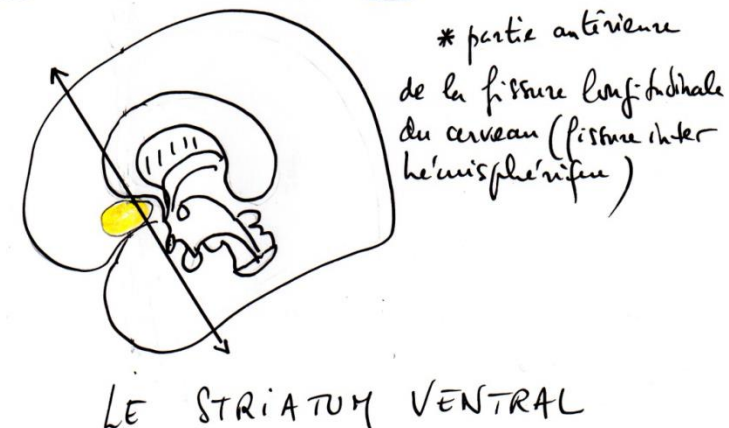 * partie antérieure
de la fissure longitudinale
du cerveau (fissure inter
hémisphérique)
LE STRIATUM VENTRAL